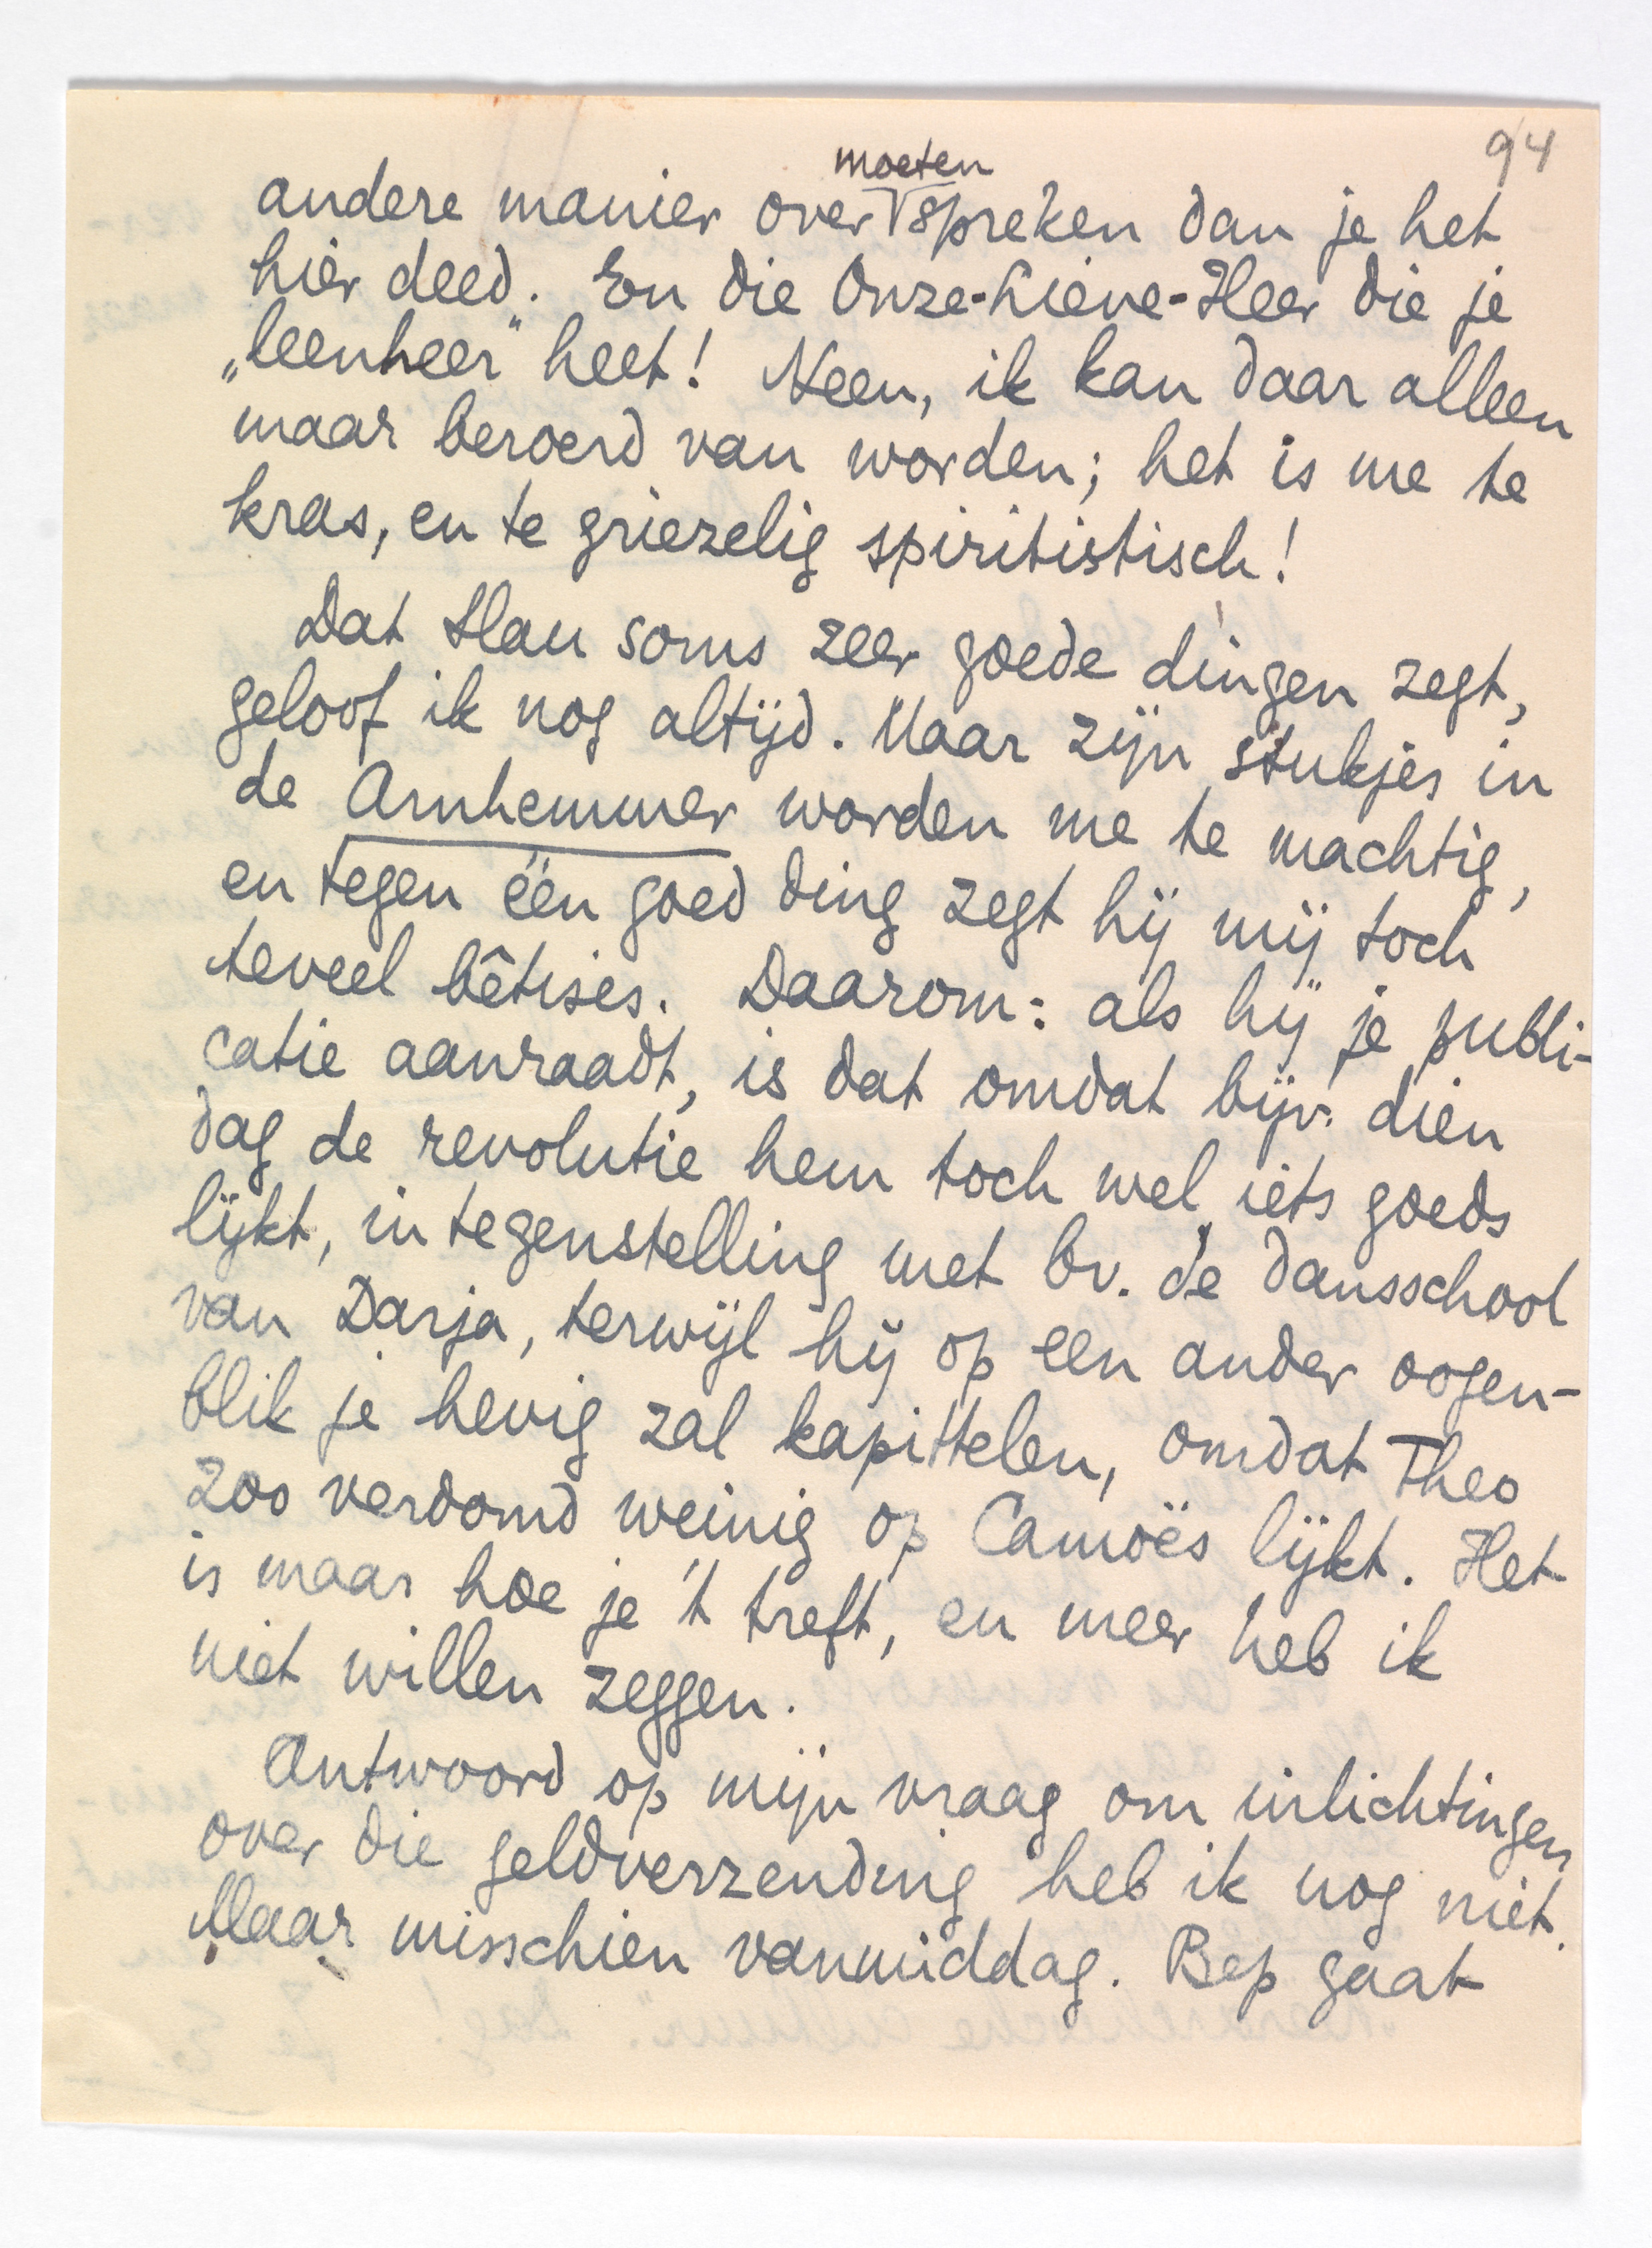 94
moeten
andere manier over spreken dan je het
hier deed. En die Onze-Lieve-Heer die je
„leenheer" heet! Neen, ik kan daar alleen
maar beroerd van worden; het is me te
kras, en te griezelig spiritistisch!
Dat Han soms zeer goede dingen zegt,
geloof ik nog altijd. Maar zijn stukjes in
de Arnhemmer worden me te machtig,
en tegen één goed ding zegt hij mij toch
teveel bêtises. Daarom: als hij je publi-
catie aanraadt, is dat omdat bijv. dien
dag de revolutie hem toch wel iets goeds
lijkt, in tegenstelling met bv. de dansschool
van Darja, terwijl hij op een ander oogen-
blik je hevig zal kapittelen, omdat Theo
zoo verdomd weinig op Camoës lijkt. Het
is maar hoe je 't treft, en meer heb ik
niet willen zeggen.
Antwoord op mijn vraag om inlichtingen
over die geldverzending heb ik nog niet.
Maar misschien vanmiddag. Bep gaat